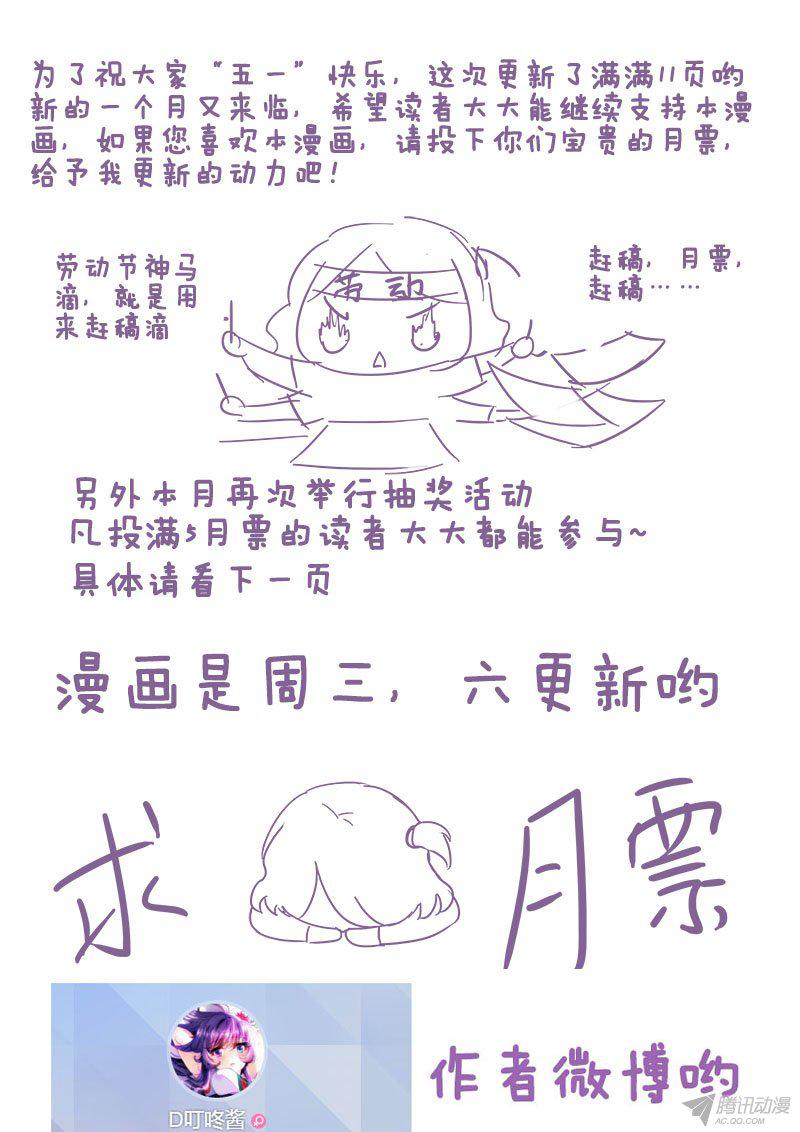 为了祝大家“五一”快乐，这次更新了满满11页哟
新的一个月又来临，希望读者大大能继续支持本漫
画，如果您喜欢本漫画，请投下你们宝贵的月票，
给予我更新的动力吧！
劳动节神马
滴，就是用
来赶稿滴
劳动
赶稿，月票，
赶稿……
另外本月再次举行抽奖活动
凡投满5月票的读者大大都能参与~
具体请看下一页
漫画是周三，六更新哟
求月票
D叮咚酱
作者微博哟
腾讯动漫
AC.QQ.COM